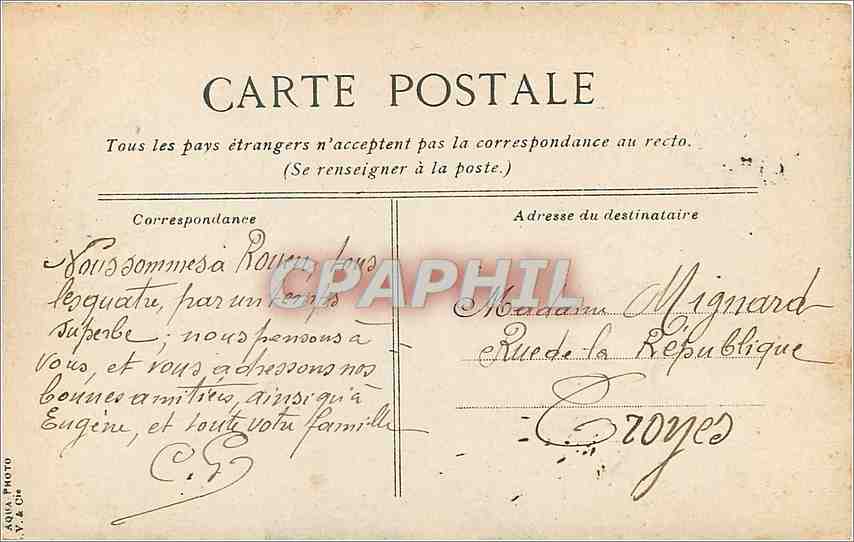 CARTE POSTALE
Tous les pays étrangers n'acceptent pas la correspondance au recto.
(Se renseigner à la poste.)
Correspondance
Nous sommes à Rouen, tous
les quatre, par un temps
superbe; nous pensons à
vous, et vous adressons nos
bonnes amitiés, ainsi qu'à
Eugène, et toute votre famille
C. G
Adresse du destinataire
Madame Mignard
Rue de la République
Troyes
CPAPHIL
AQUA-PHOTO
V. & Cie